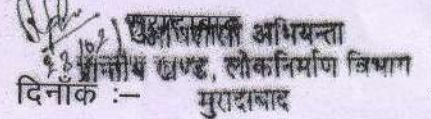 अभियन्ता
प्रान्तीय खण्ड, लोकनिर्माण विभाग
दिनाँक :— मुरादाबाद